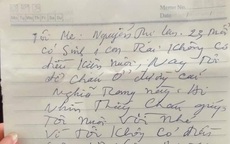 MEMO NO.
DATE
Tôi Mẹ: Nguyễn Thị Lan. 23 tuổi
có Sinh 1 con Rai Không có
điều Kiện nuôi, Nay Tôi
để cháu ở đây cái
Nghõ Rong này. Ai
Nhìn Thấy Cháu giúp
Tôi Nuôi Với nhé
Vì Tôi Khô có điều